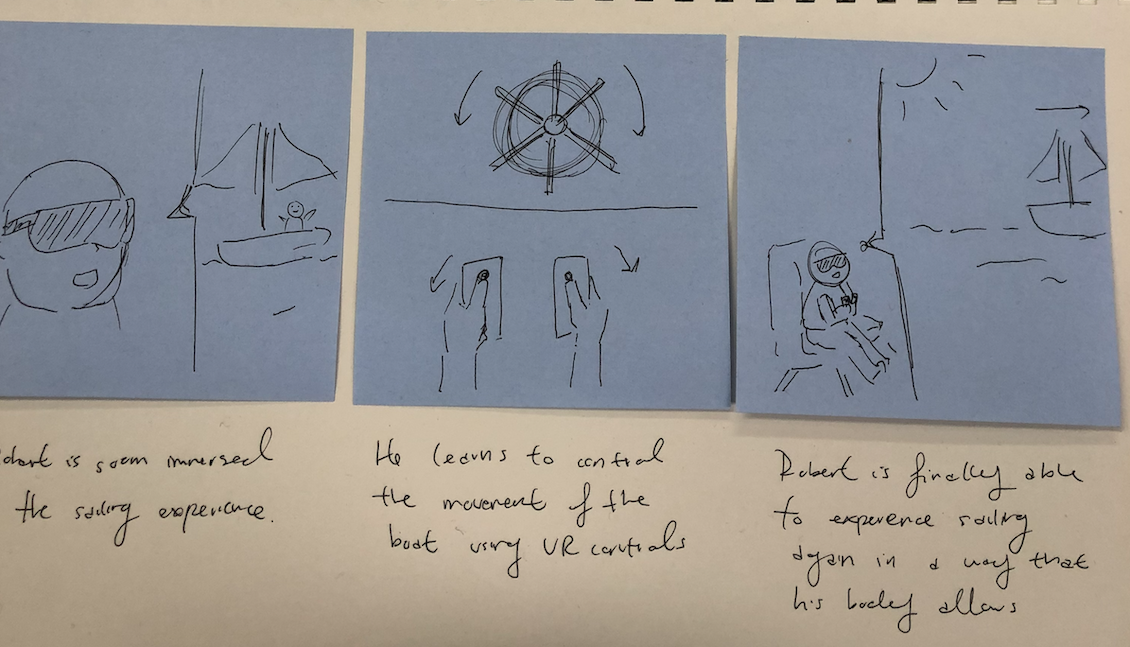 obert is soon immersed
the sailing experience.
He learns to control
the movement of the
boat using VR controls
Robert is finally able
to experience sailing
again in a way that
his body allows